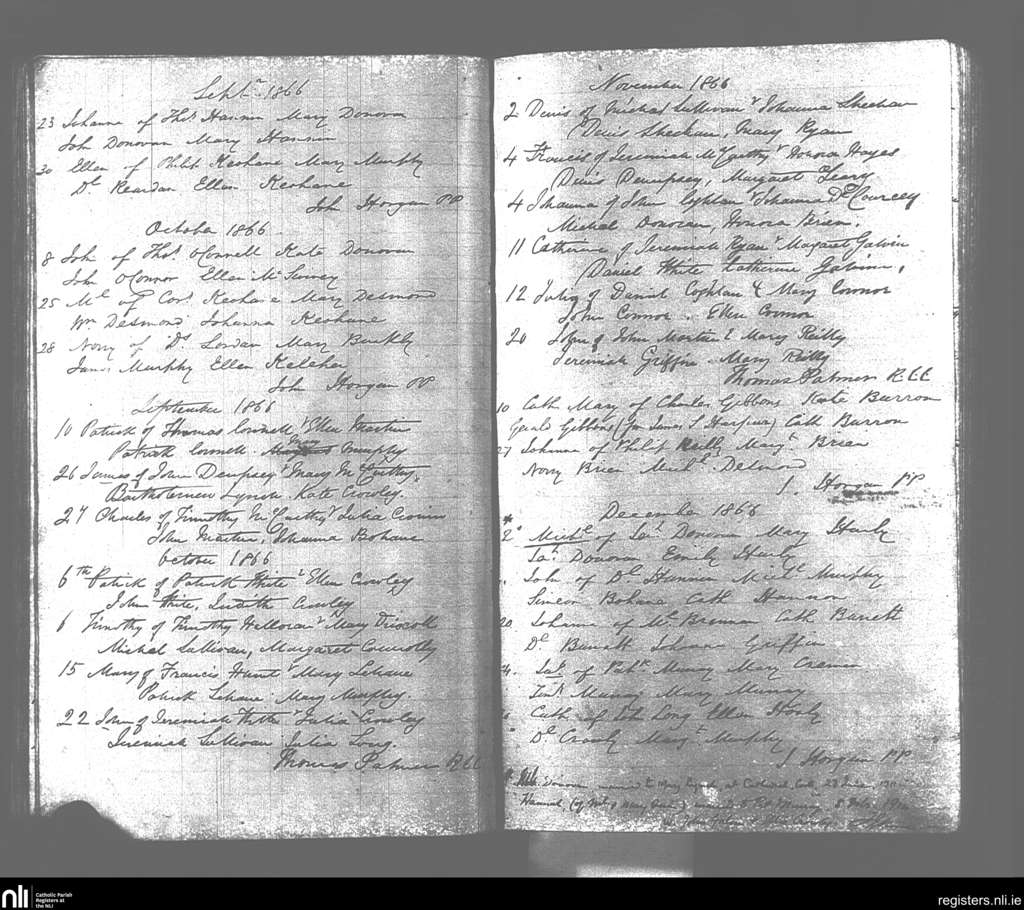 Sept. 1866
23 Johanna of Thos. Hannin Mary Donovan
John Donovan Mary Hannin
30 Ellen of Philip Keohane Mary Murphy
Dl. Reardan Ellen Keohane
John Horgan PP
October 1866
8 John of Thos. O'Connell Kate Donovan
John O'Connor Ellen McSwiney
25 Ml. of Cors. Keohane Mary Desmond
Wm Desmond Johanna Keohane
28 Nory of Ds. Lordan Mary
James Murphy Ellen Keleher
John Horgan PP
September 1866
10 Patrick of Thomas Connell & Ellen Martin
Patrick Connell Mary Murphy
26 James of John Dempsey & Mary McCarthy
Bartholemew Lynch. Kate Crowley.
27 Charles of Timothy McCarthy & Julia Cronin
John Martin, Johanna Bohane
October 1866
6th Patrick of Patrick White & Ellen Crowley
John White, Judith Crowley
6 Timothy of Timothy Halloran & Mary Driscoll
Michel Sullivan, Margaret Connolly
15 Mary of Francis Hunt & Mary Lehane
Patrick Lehane. Mary Murphy.
22 John of Jeremiah & Julia Crowley
Jeremiah Sullivan Julia Long.
Thomas Palmer RCC
November 1866
2 Denis of Michael Sullivan & Johanna Sheehan
Denis Sheehan, Mary Ryan
4 Francis of Jeremiah McCarthy & Honora Hayes
Denis Dempsey, Margaret Leary
4 Johanna of John Coghlan & Johanna De Courcey
Michel Donovan, Honora Brien.
11 Catherine of Jeremiah Ryan & Margaret Galvin
Daniel White Catherine Galvin.
12 Julia of Daniel Coghlan & Mary Connor
John Connor. Ellen Connor
20 John of John Martin & Mary Reilly
Jeremiah Griffin Mary Reilly
Thomas Palmer RCC
10 Cath Mary of Charles Gibbons Kate Barron
Gerald Gibbons (for James S Harpur) Cath Barron
27 Johanna of Philip Reilly Margt. Brien
Nory Brien Michl. Desmond
J. Horgan PP
December 1866
2 Michl. of Jas. Donovan Mary Hurly
Jas. Donovan Emily Hurly
John of Dl. Hannon Murphy
Simeon Bohane Cath Hannon
20 Johanna of Brennan Cath Barrett
Dl. Barrett Johanna Griffin
of Patk. Murray Mary Cremin
Murray Mary Murray
Cath of John Long Ellen Hurly
Dl. Crowly Margt. Murphy
J Horgan PP
Donovan married to Mary at Cork, 28 June
Hannah married to
nli
Catholic Parish
Registers at
the NLI
registers.nli.ie